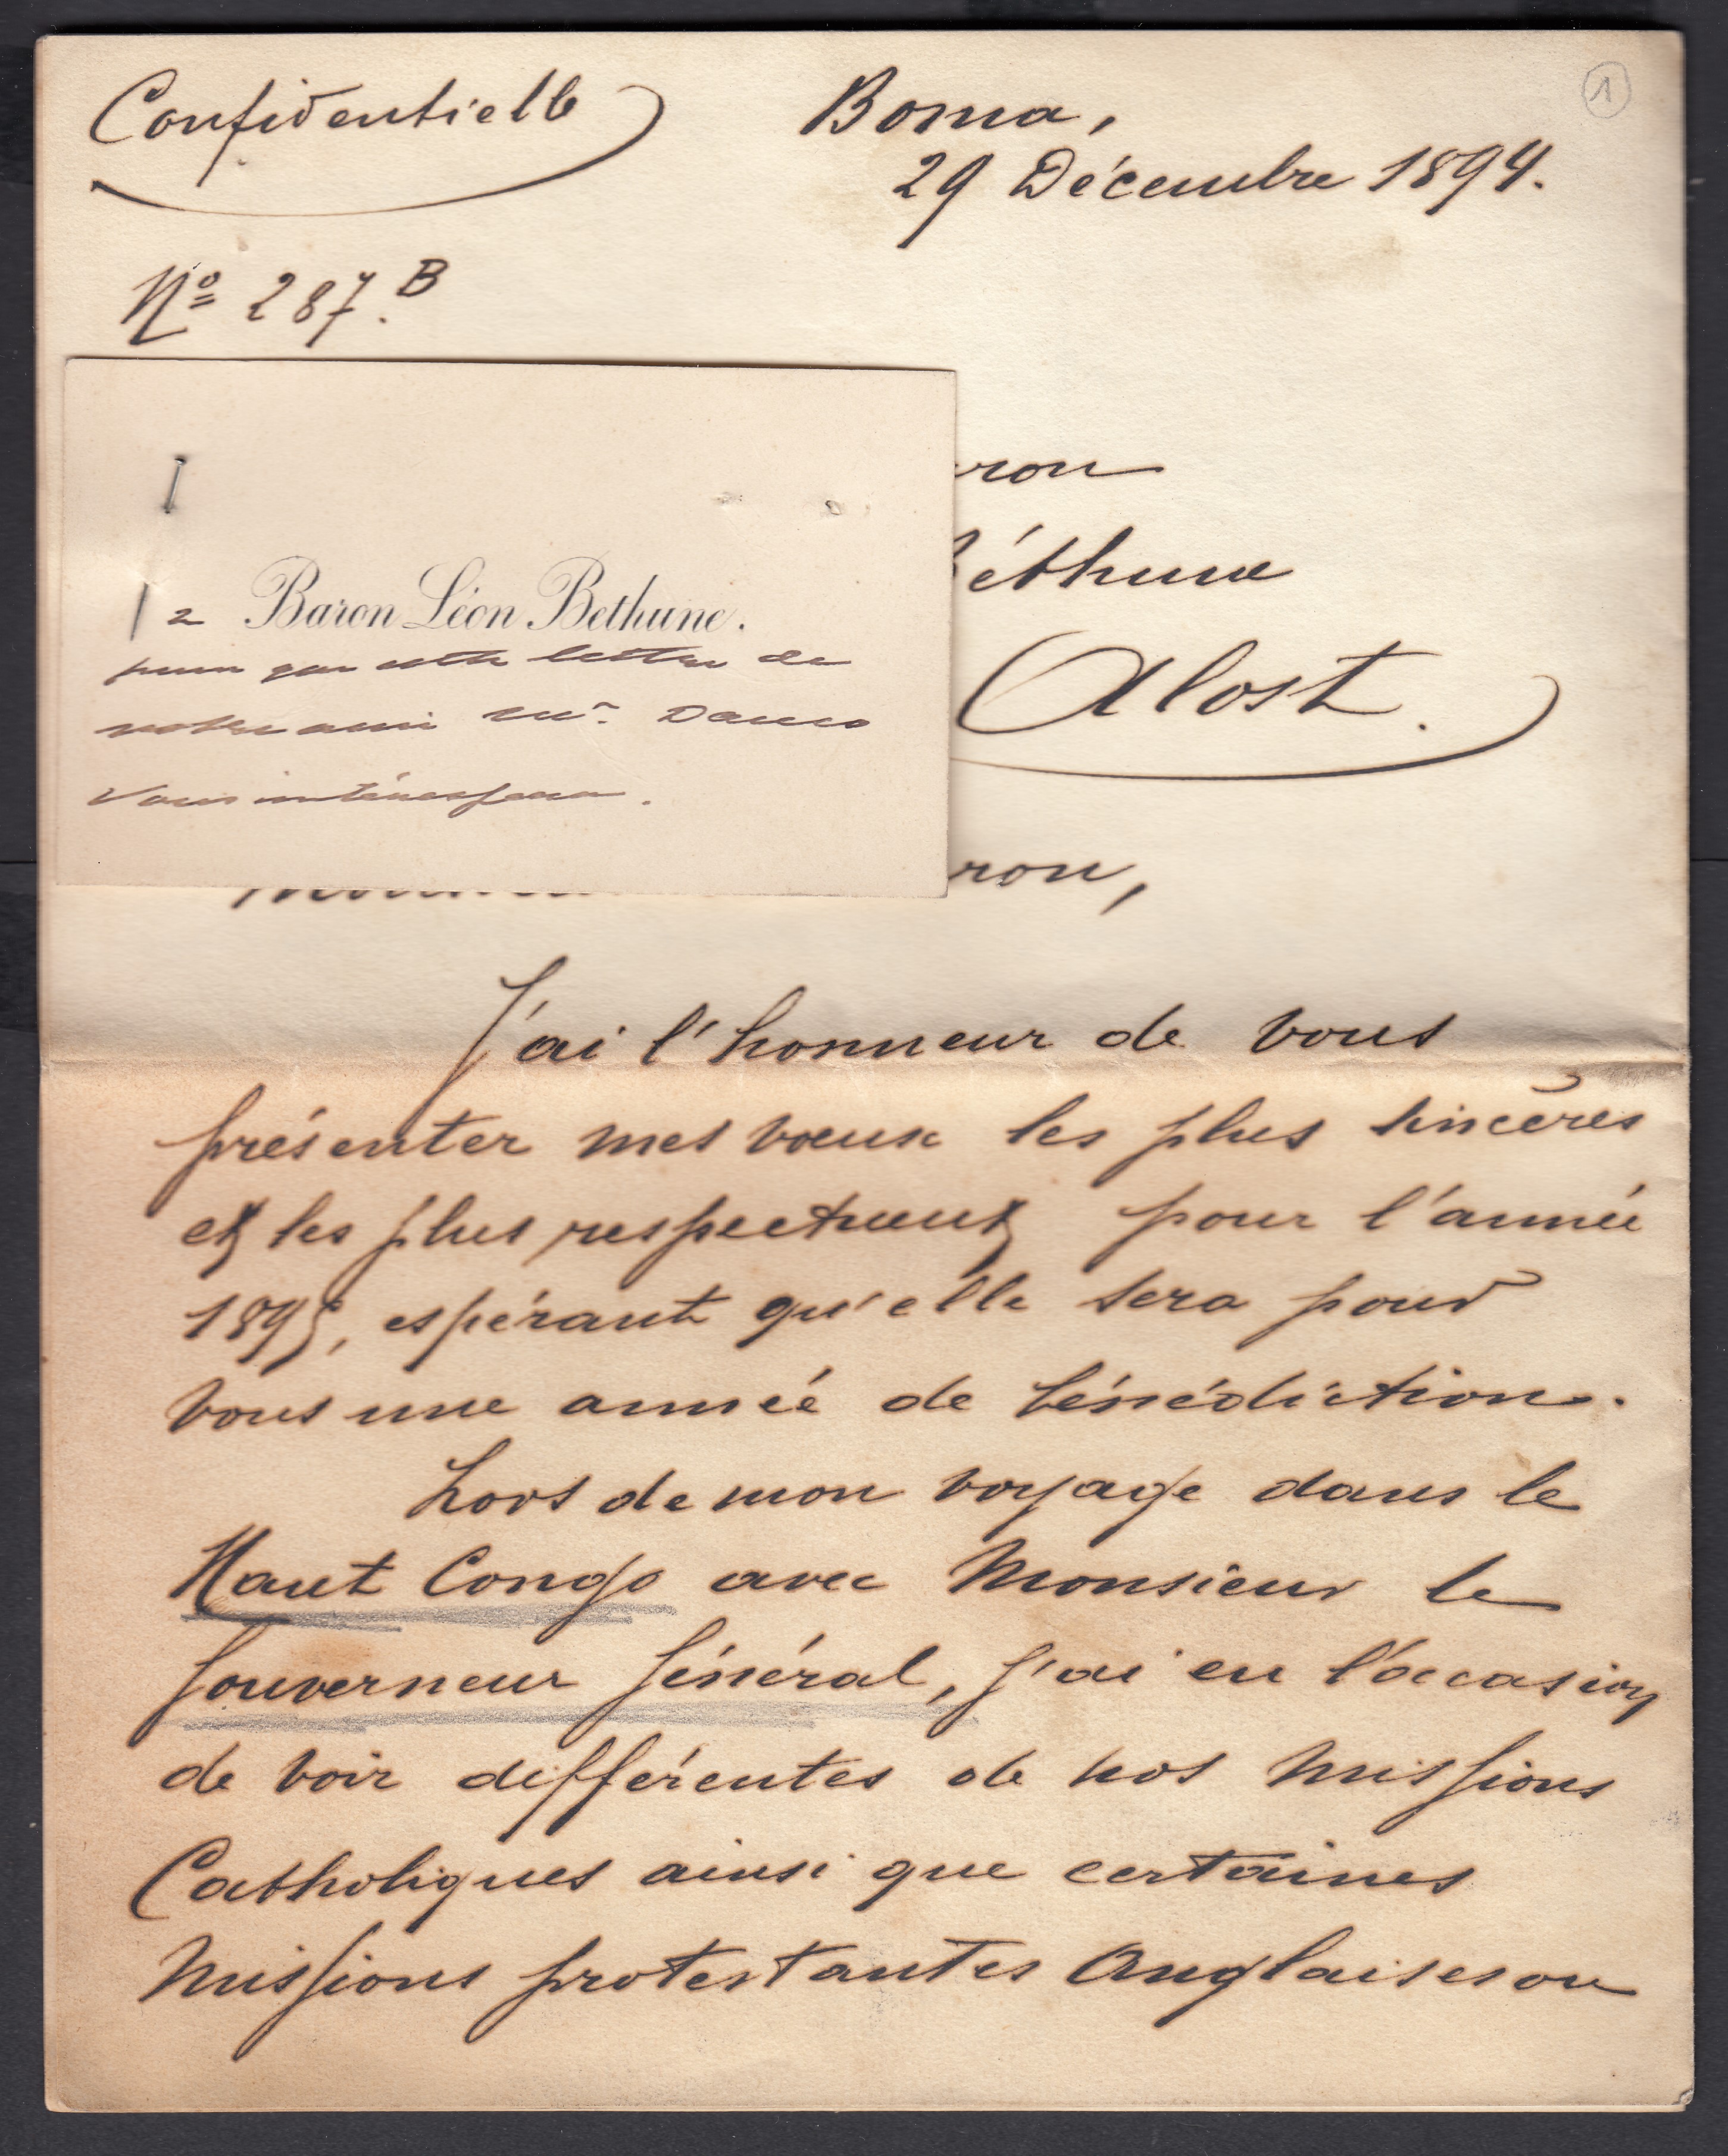 Confidentielle
Boma,
29 Décembre 1894.
1
Nº 287.B
ron
éthune
Alost.
Baron Léon Bethune.
que cette lettre de
notre ami Mr. Daens
vous intéressera.
ron,
J'ai l'honneur de vous
présenter mes voeux les plus sincères
et les plus respectueux pour l'année
1895, espérant qu'elle sera pour
vous une année de bénédiction.
Lors de mon voyage dans le
Haut Congo avec Monsieur le
Gouverneur Général, j'ai eu l'occasion
de voir différentes de nos missions
Catholiques ainsi que certaines
missions protestantes Anglaises ou